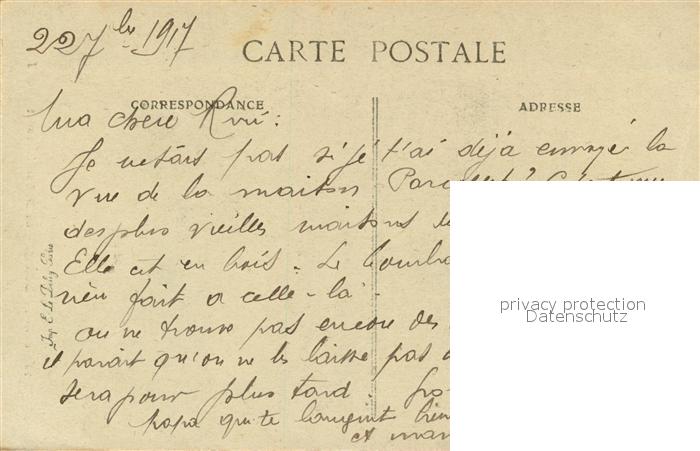 22 7bre 1917
CARTE POSTALE
CORRESPONDANCE
ADRESSE
Ma chère
Je ne sais pas si je t'ai déjà envoyé la
vue de la maison
des plus vieilles maisons
Elle est en bois. Le
rien fait à celle-là.
on ne trouve pas encore des
il parait qu'on ne les laisse pas
sera pour plus tard.
papa qui te
et
Imp. E. Le Deley, Paris
privacy protection
Datenschutz